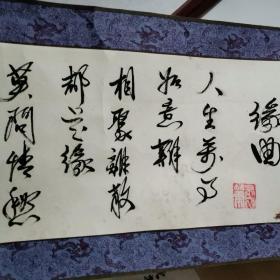 缘曲
人生万事
如意难
相聚离散
都是缘
莫问情愁